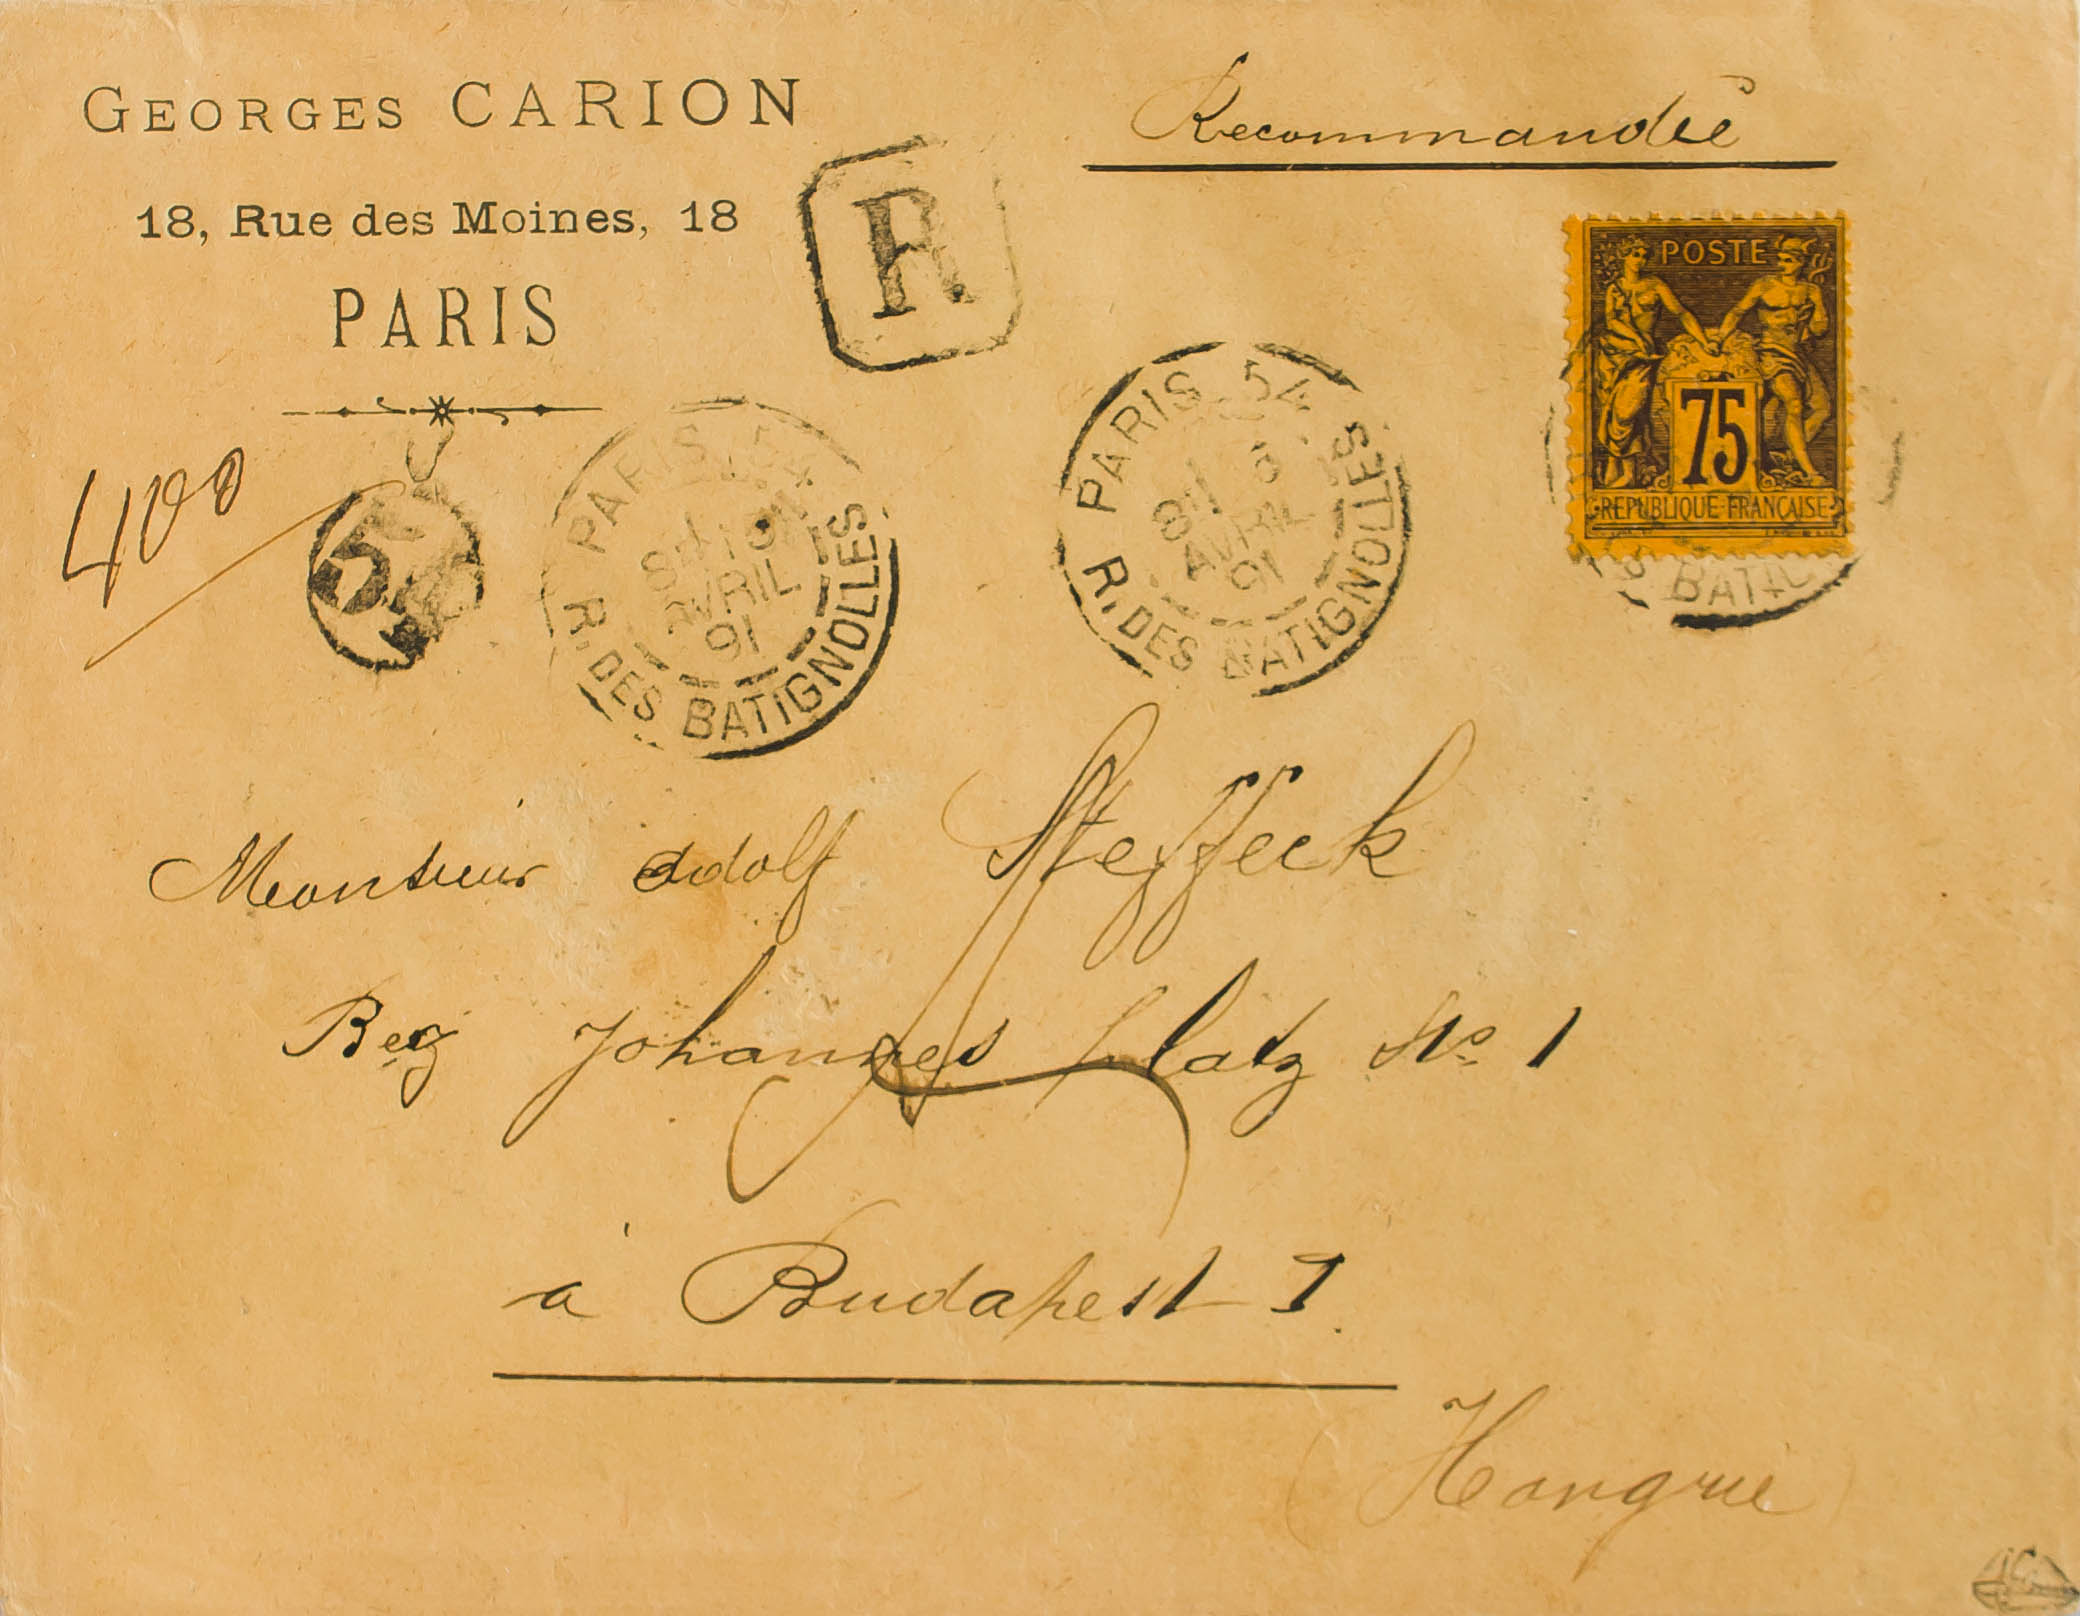 GEORGES CARION
18, Rue des Moines, 18
PARIS
Recommandée
R
POSTE
75
REPUBLIQUE FRANÇAISE
400
5
PARIS 54
AVRIL
91
R. DES BATIGNOLLES
PARIS 54
AVRIL
91
R. DES BATIGNOLLES
BATIG
Monsieur Adolf Steffeck
Johannes Platz No. 1
à Budapest I.
(Hongrie)